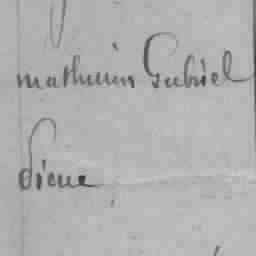 mathurin Gabriel
Dieue